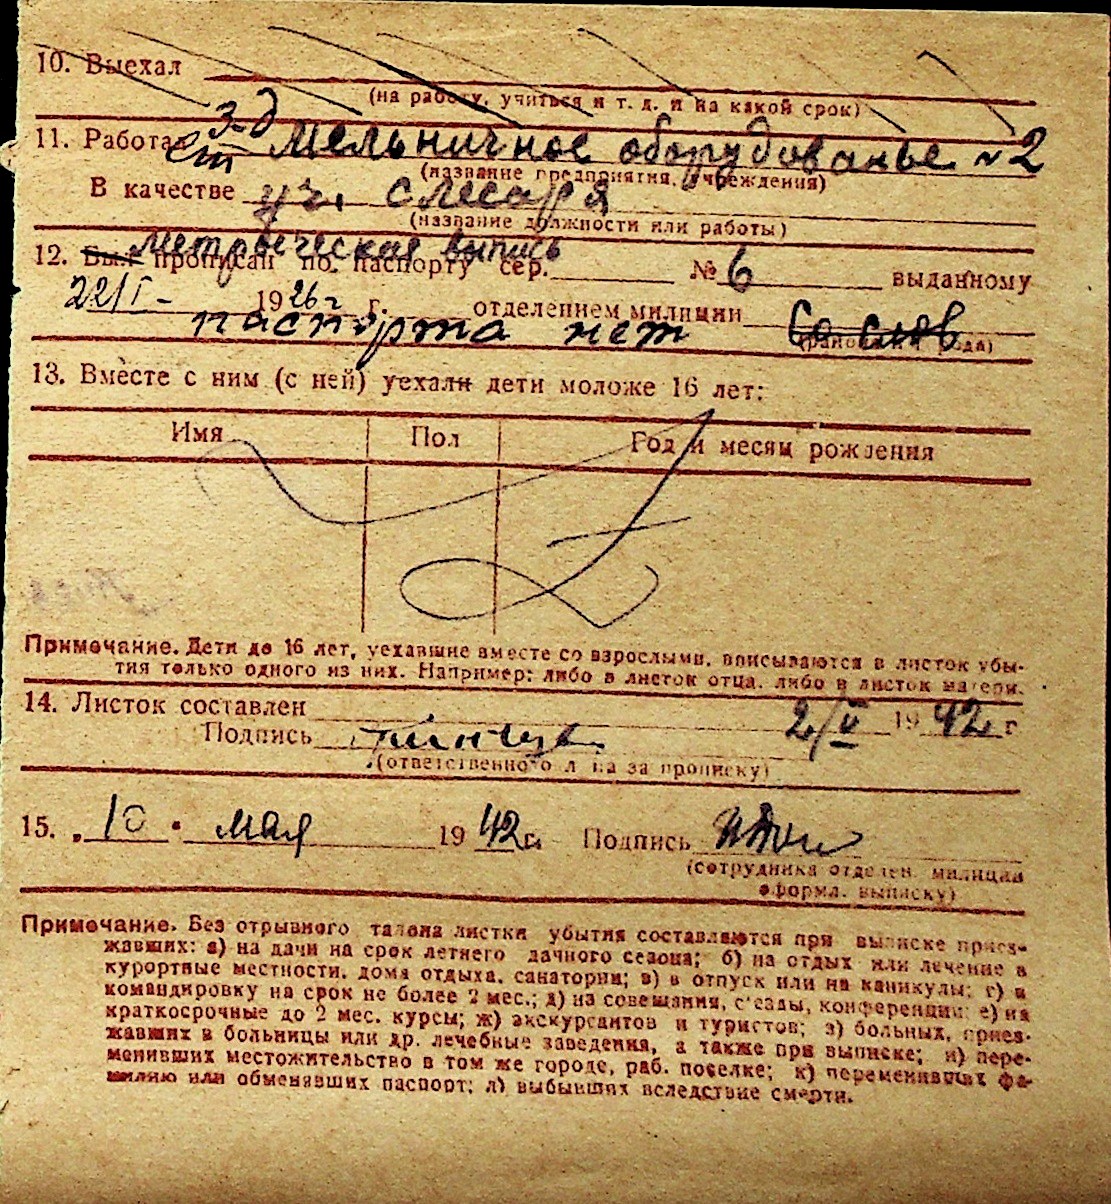 10. Выехал
(на работу, учиться и т. д. и на какой срок)
11. Работал з-д Мельничное оборудованье № 2
(название предприятия, учреждения)
В качестве уч. слесаря
(название должности или работы)
метрическая выпись
12. Был прописан по паспорту сер. № 6 выданному
22/I - 1926 г г. отделением милиции
паспорта нет
13. Вместе с ним (с ней) уехали дети моложе 16 лет:
Имя Пол Год и месяц рождения
Примечание. Дети до 16 лет, уехавшие вместе со взрослыми, вписываются в листок убы-
тия только одного из них. Например: либо в листок отца, либо в листок матери.
14. Листок составлен 2/V 1942 г
Подпись
(ответственного л на за прописку)
15. „ 10 " мая 1942 г. Подпись
(сотрудника отделен. милиции
оформл. выписку)
Примечание. Без отрывного талона листки убытия составляются при выписке приез-
жавших: а) на дачи на срок летнего дачного сезона; б) на отдых или лечение в
курортные местности, дома отдыха, санатории; в) в отпуск или на каникулы; г) в
командировку на срок не более 2 мес.; д) на совещания, съезды, конференции; е) на
краткосрочные до 2 мес. курсы; ж) экскурсантов и туристов; з) больных, приез-
жавших в больницы или др. лечебные заведения, а также при выписке; и) пере-
менивших местожительство в том же городе, раб. поселке; к) переменивших фа-
милию или обменявших паспорт; л) выбывших вследствие смерти.